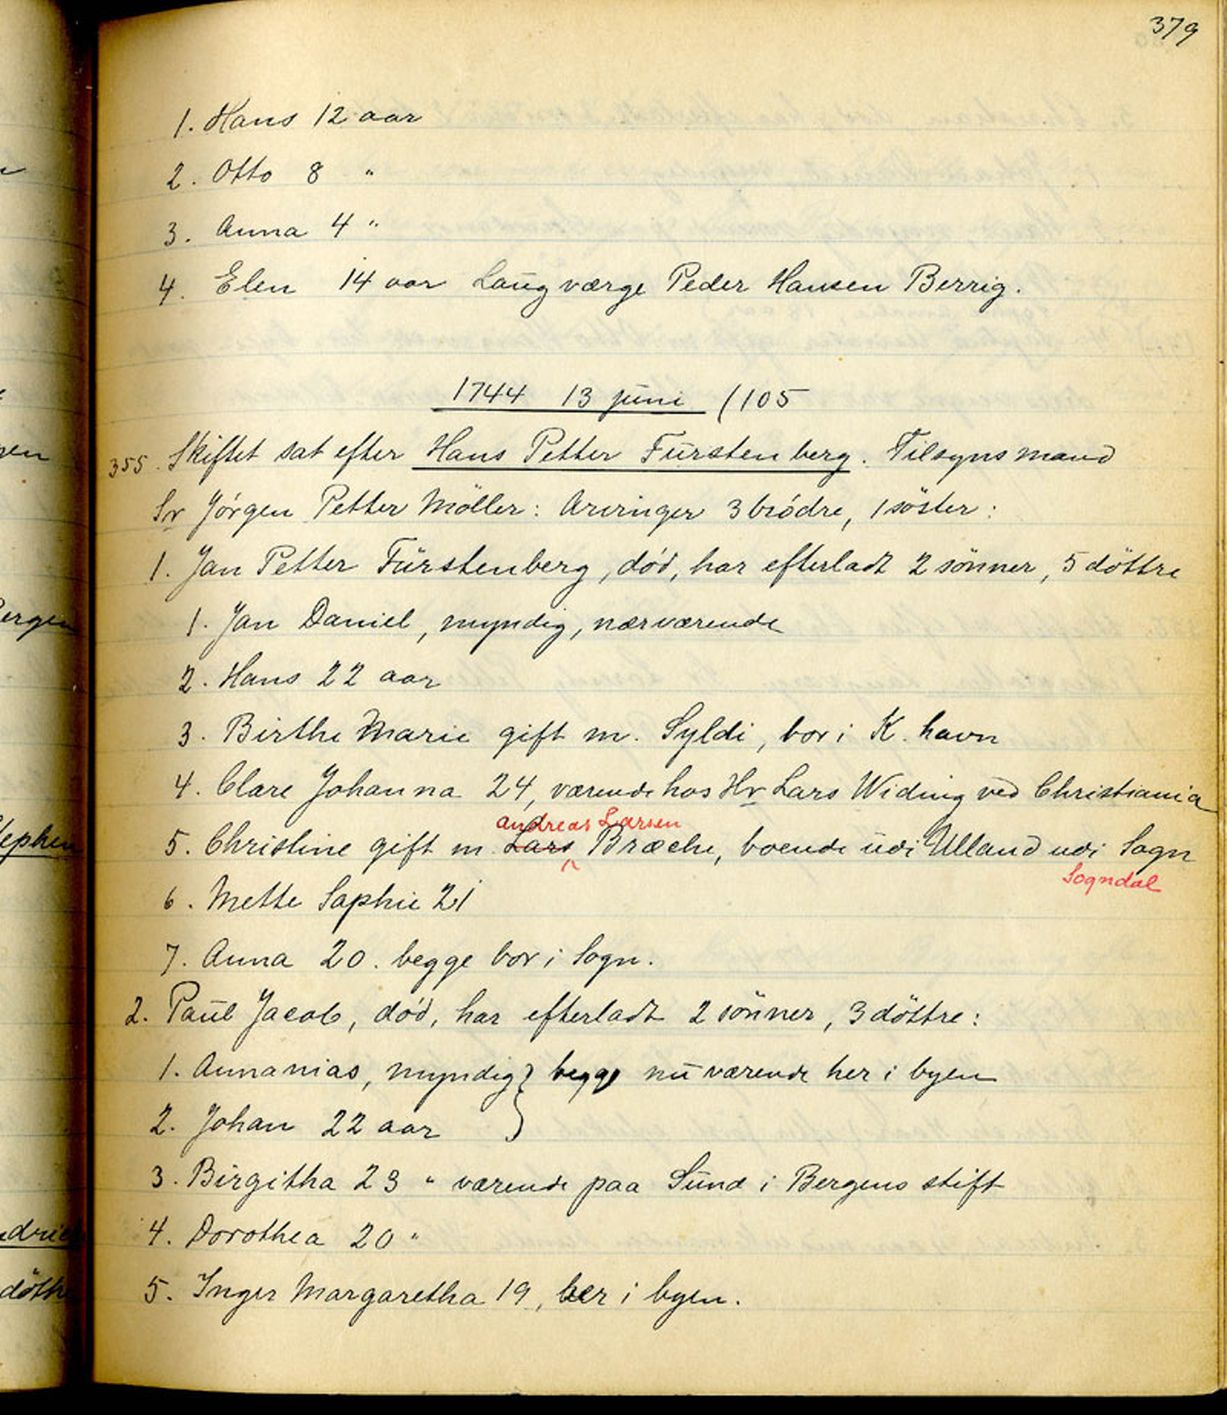 379
1. Hans 12 aar
2. Otto 8 "
3. Anna 4 "
4. Elen 14 aar Laugværge Peder Hansen Berrig.
1744 13 juni (105
355. Skiftet sat efter Hans Petter Fürstenberg. Tilsynsmand
Sr Jörgen Petter Möller: Arvinger 3 brödre, 1 söster:
1. Jan Petter Fürstenberg, död, har efterladt 2 sönner, 5 döttre
1. Jan Daniel, myndig, nærværende
2. Hans 22 aar
3. Birthe Marie gift m. Syldi, bor i K. havn
4. Clare Johanna 24, værende hos Hr Lars Widing ved Christiania
andreas Larsen
5. Christine gift m Lars Bræche, boende udi Ulland udi Sogn
Sogndal
6. Mette Saphie 21
7. Anna 20. begge bor i Sogn.
2. Paul Jacob, död, har efterladt 2 sönner, 3 döttre:
1. Annanias, myndig } begge nu værende her i byen
2. Johan 22 aar }
3. Birgitha 23 " værende paa Sund i Bergens stift
4. Dorothea 20 "
5. Inger Margaretha 19, her i byen.
ergen
tephen
döth